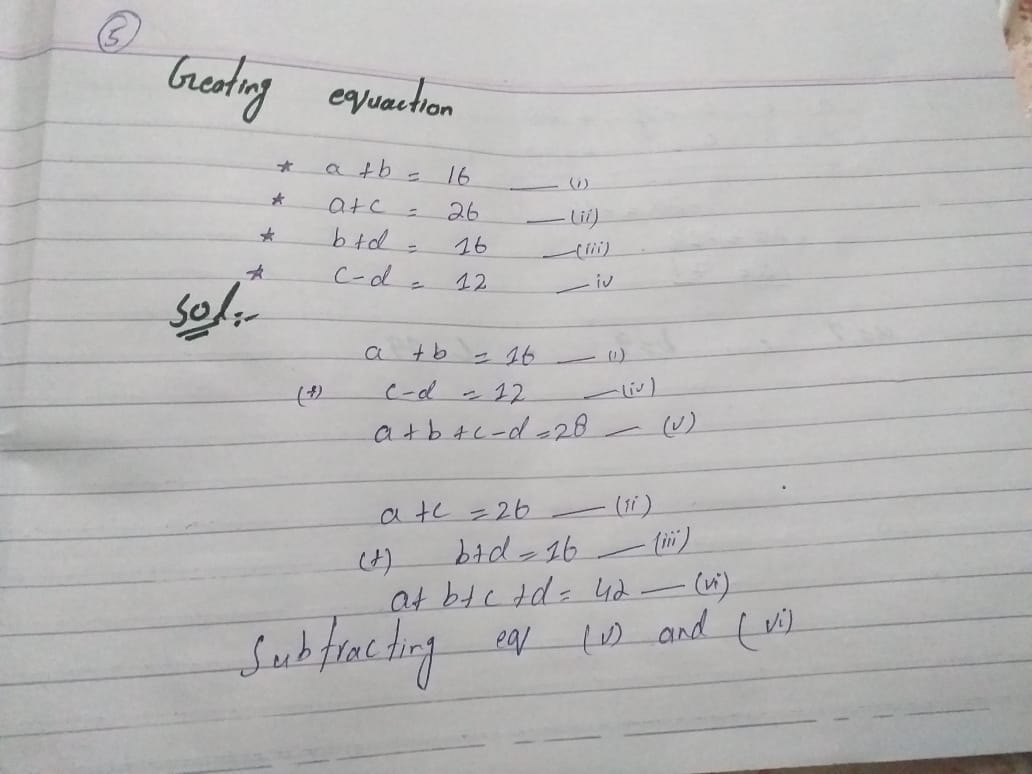 5
Creating equaction
* a + b = 16 — (i)
* a + c = 26 — (ii)
* b + d = 16 — (iii)
* c - d = 12 — iv
Sol:-
a + b = 16 — (i)
(+) c - d = 12 — (iv)
a + b + c - d = 28 — (v)
a + c = 26 — (ii)
(+) b + d = 16 — (iii)
a + b + c + d = 42 — (vi)
Subtracting eq (v) and (vi)